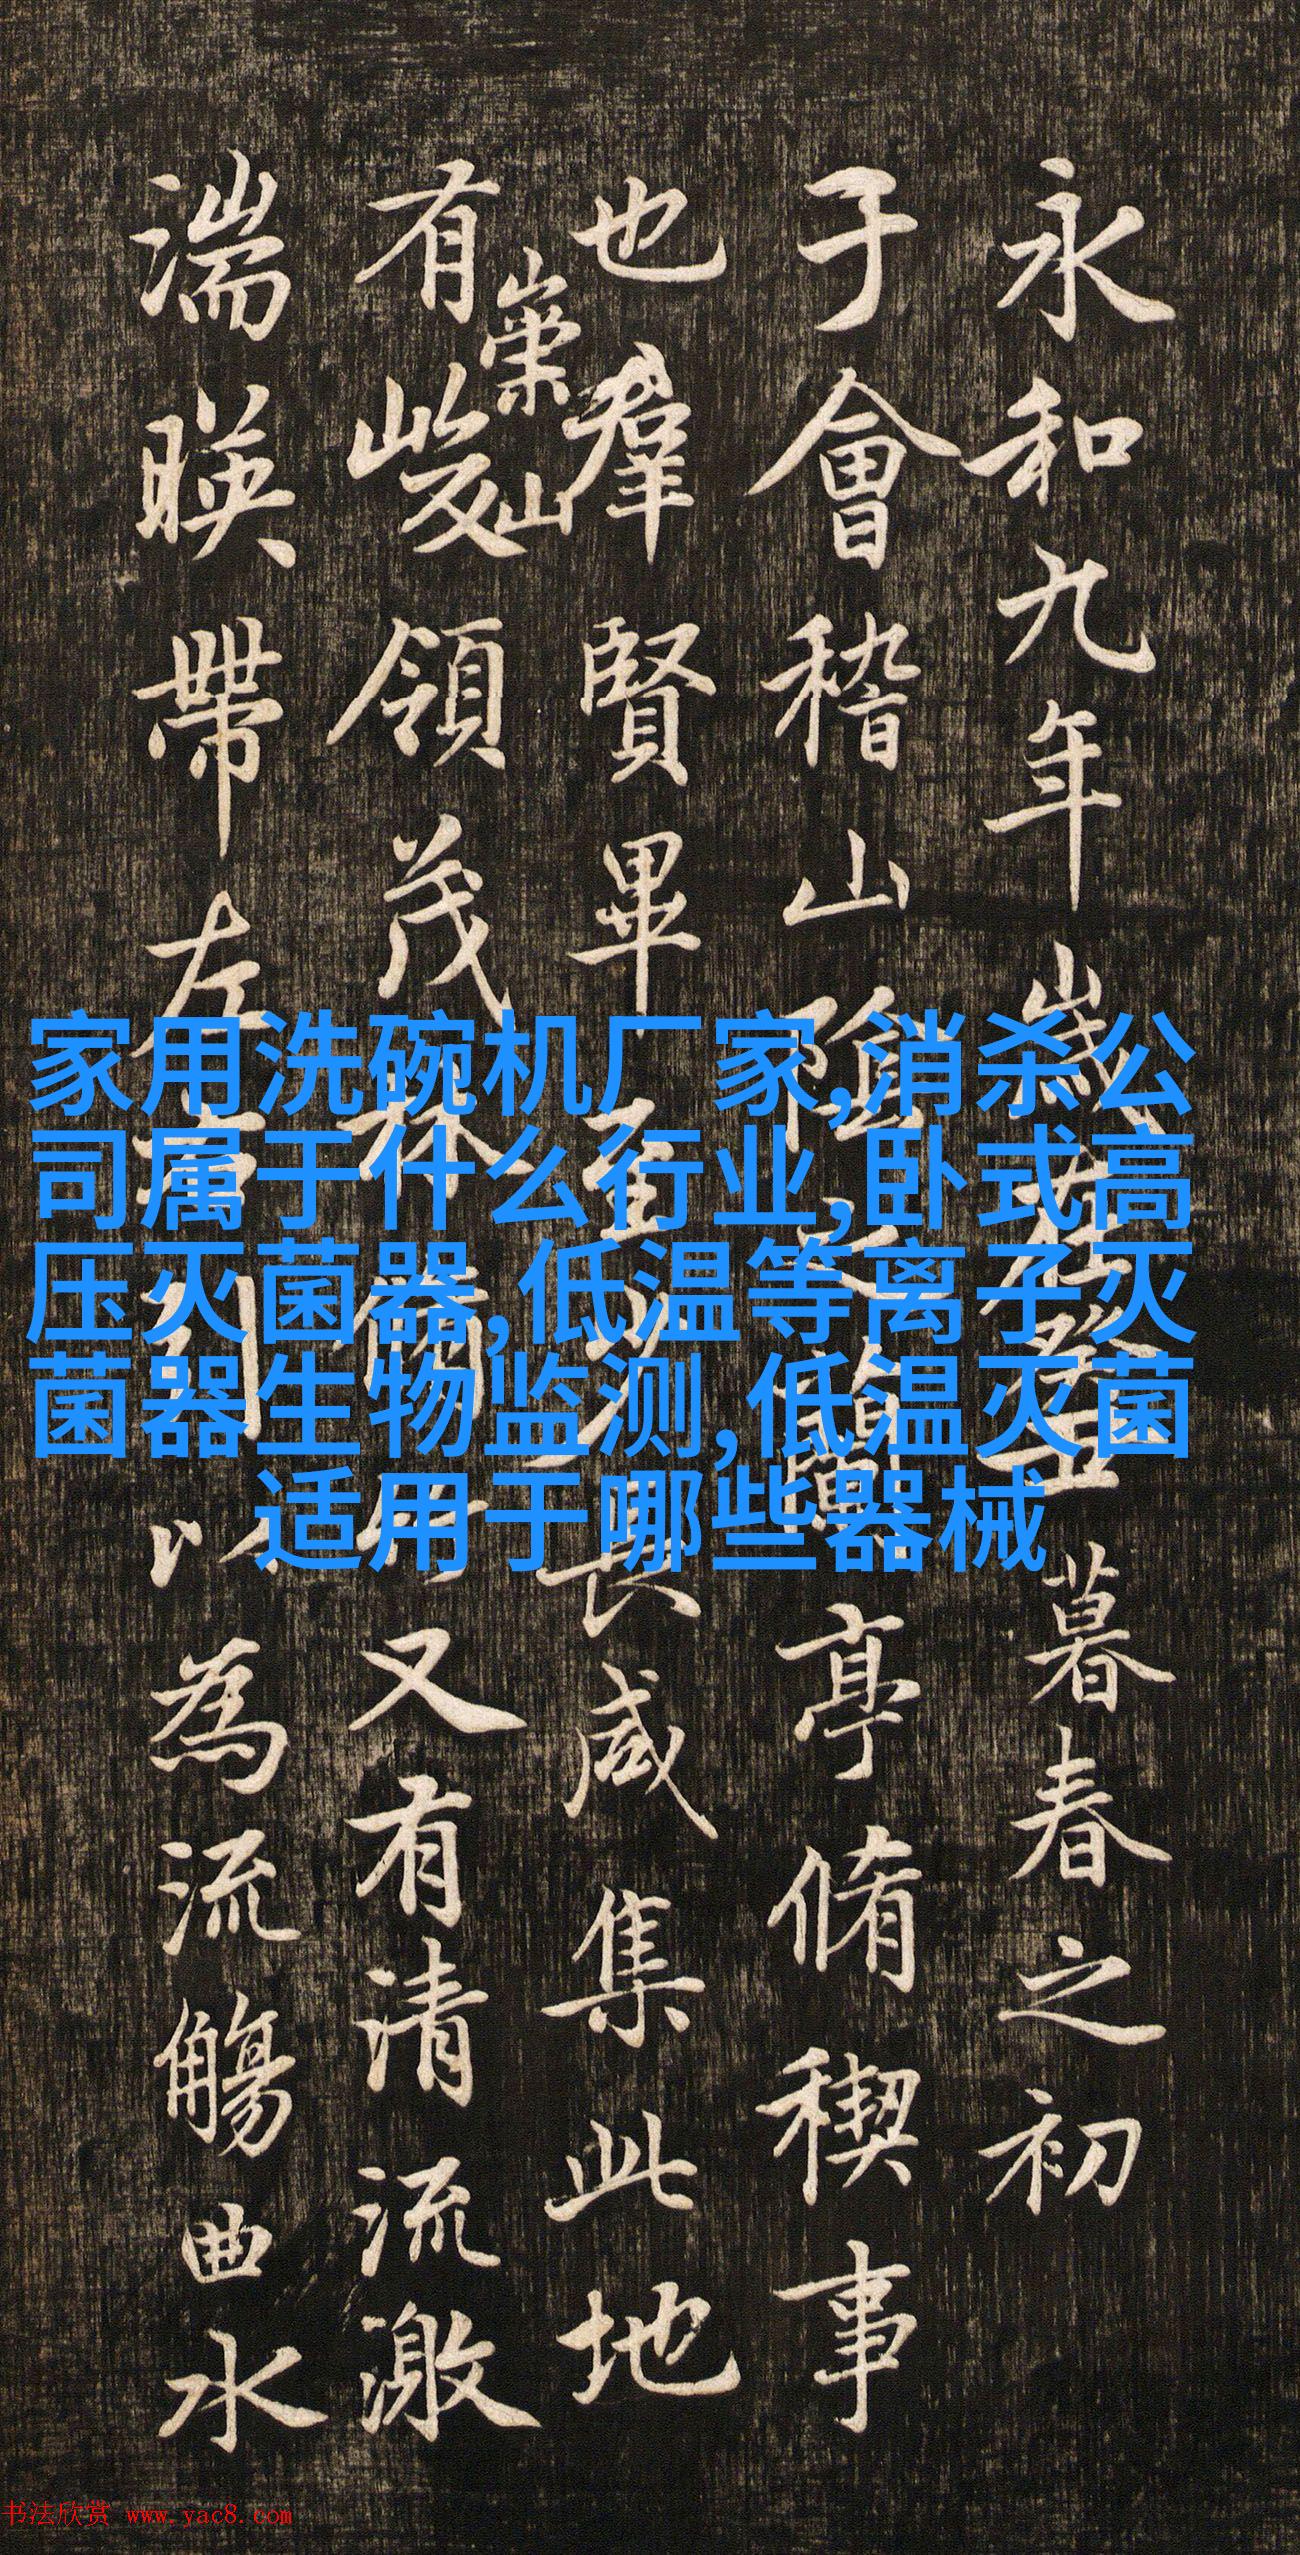 永和九年歲在癸丑暮春之初
于會稽山陰之蘭亭脩稧事
也羣賢畢至少長咸集此地
有崇山峻領茂林脩竹又有清流激
湍暎帶左右引以為流觴曲水
家用洗碗机厂家,消杀公
司属于什么行业,卧式高
压灭菌器,低温等离子灭
菌器生物监测,低温灭菌
适用于哪些器械
书法欣赏 www.yac8.com